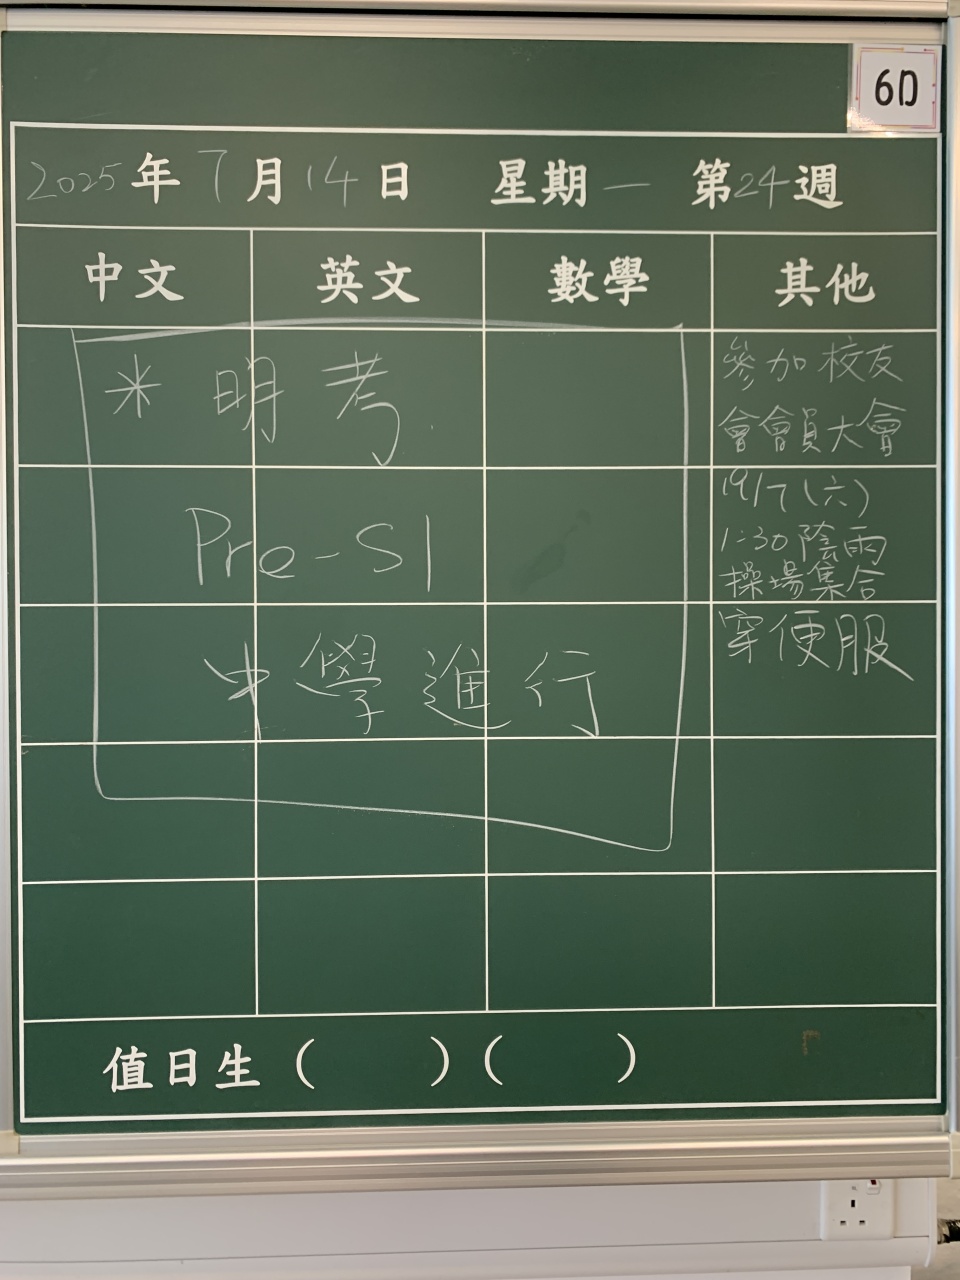 6D
2025年7月14日 星期一 第24週
中文 英文 數學 其他
* 明考
Pre-S1
中學進行
參加校友
會會員大會
19/7(六)
1:30陰雨
操場集合
穿便服
值日生( )( )